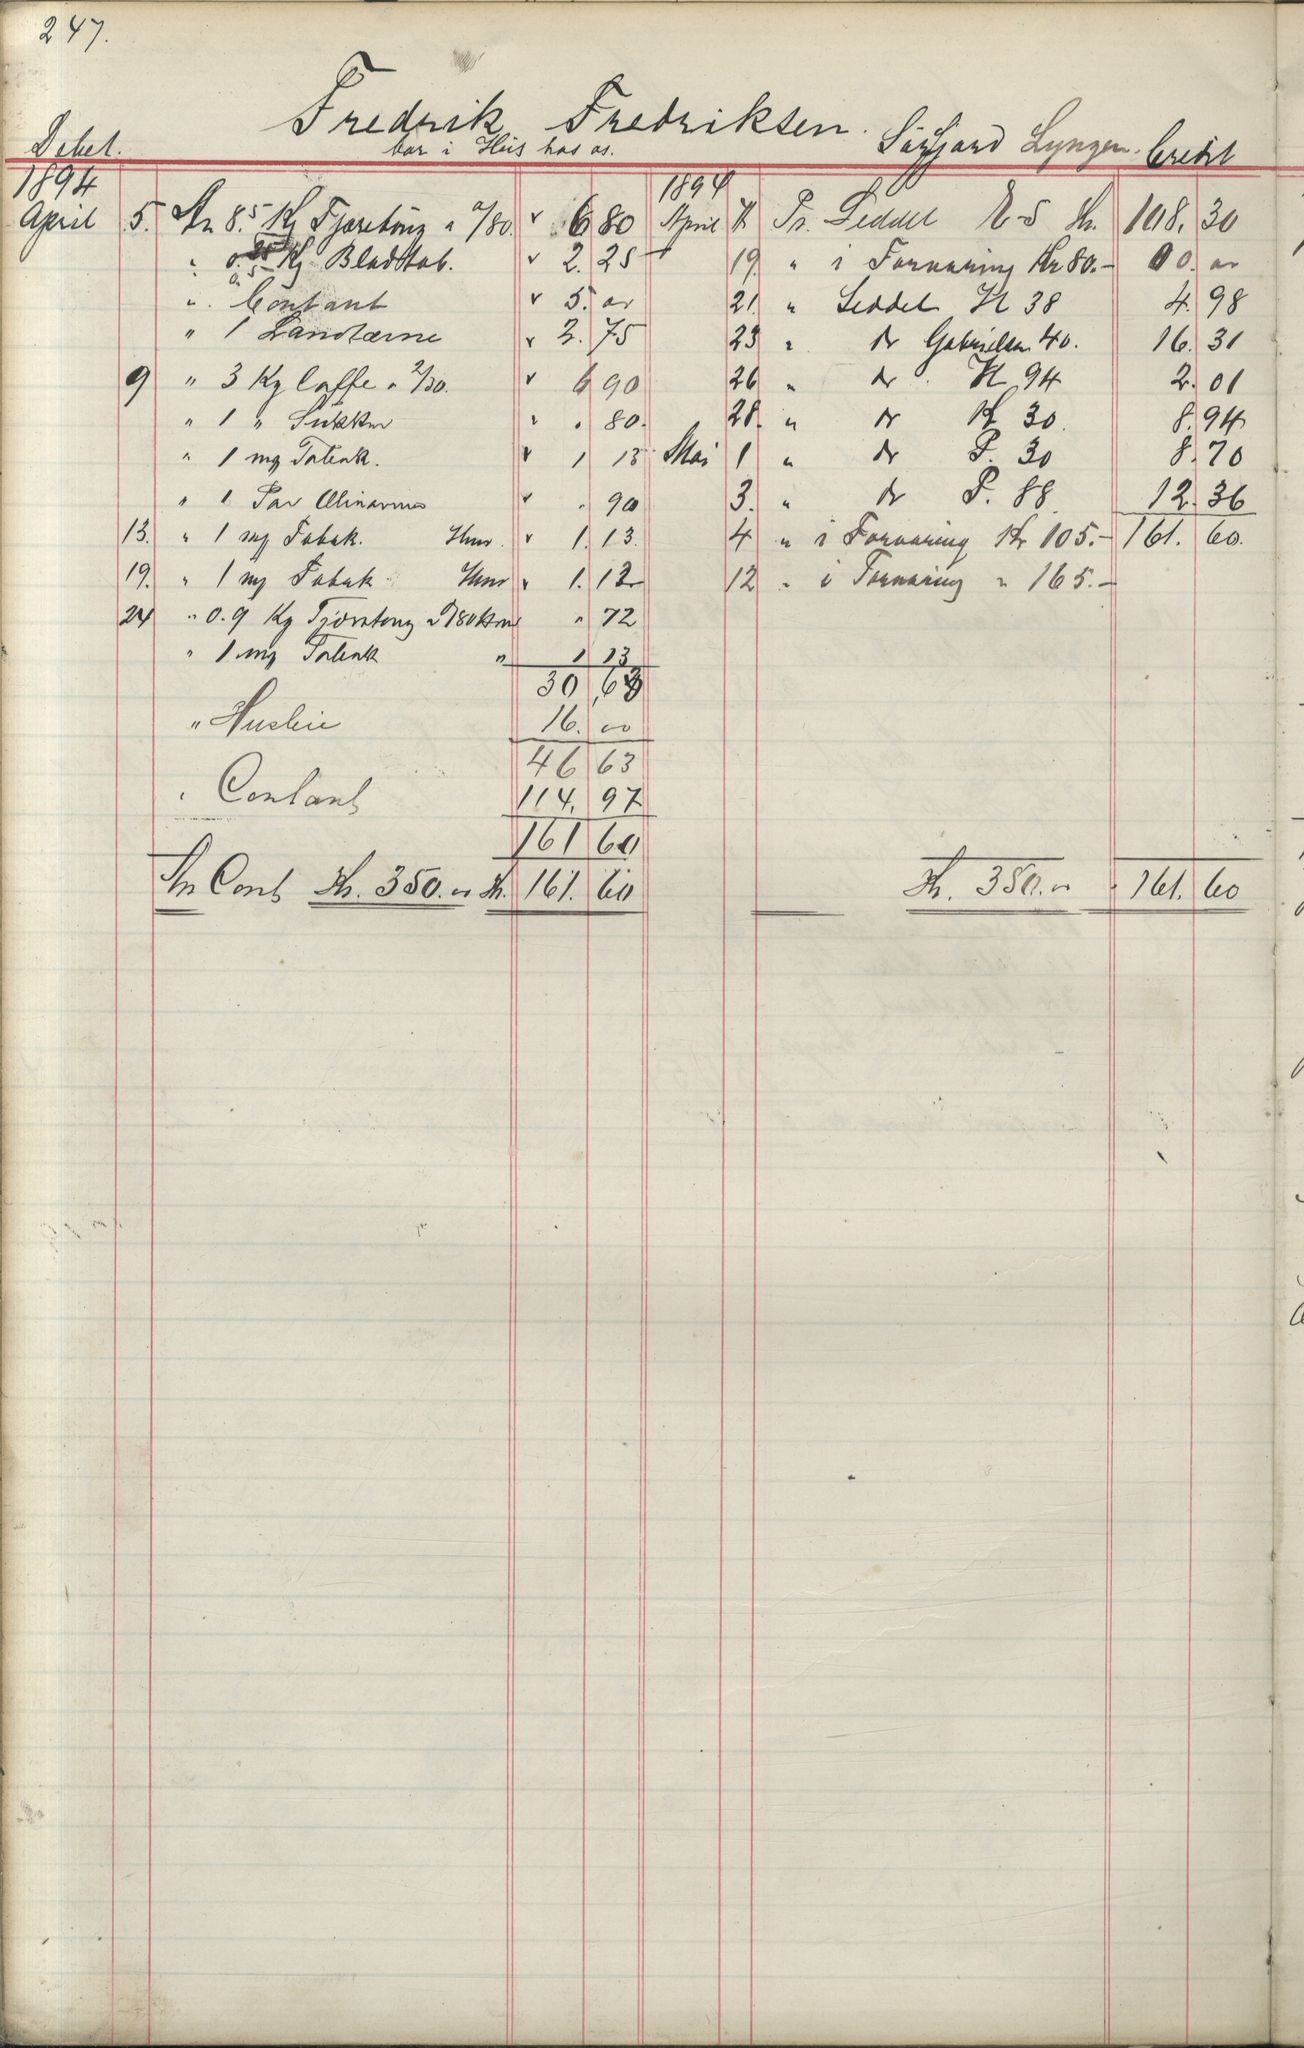 247.
Fredrik Fredriksen. Sörfjord Lyngen.
Debet. bor i Hus hos os. Credit
1894
April 5. An 8.5 Kg Tjæretoug a "/80. " 6 80
" 0.5 Kg Bladtob. " 2.25
" Contant " 5. "
" 1 Landtærne " 2.75
9 " 3 Kg Caffe a 2/30. " 6 90
" 1 " Sukker " . 80.
" 1 mg Tobak. " 1 13
" 1 Par " . 90
13. " 1 mg Tobak. " 1.13.
19. " 1 mg Tobak " 1.12
24 " 0.9 Kg Tjæretoug a "/80 " 72
" 1 mg Tobak " 1 13
30,63
" Husleie 16. oo
46 63
" Contant 114.97
161 60
An Cont Kr. 350. oo Kr. 161. 60
1894
April Pr. Seddel E-5 Kr. 108.30
19. " i Forvaring Kr 80.-
21. " Seddel H 38 4.98
23 " do Gabrielsen 40. 16.31
26 " do H 94 2.01
28. " do H 30. 8.94
Mai 1 " do P. 30 8.70
3. " do P. 88. 12.36
4 " i Forvaring Kr 105.- 161. 60.
12 " i Forvaring " 165.-
Kr. 350. oo 161. 60